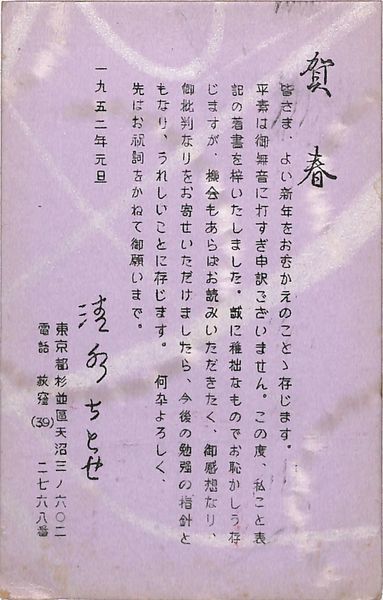 賀春
皆さま、よい新年をおむかえのことゝ存じます。
平素は御無音に打すぎ申訳ございません。この度、私こと表
記の著書を梓いたしました。誠に稚拙なものでお恥かしう存
じますが、機会もあらばお読みいただきたく、御感想なり、
御批判なりをお寄せいただけましたら、今後の勉強の指針と
もなり、うれしいことに存じます。何卒よろしく、
先はお祝詞をかねて御願いまで。
一九五二年元旦
清水ちとせ
東京都杉並區天沼三ノ六〇二
電話 荻窪(39)二七六八番